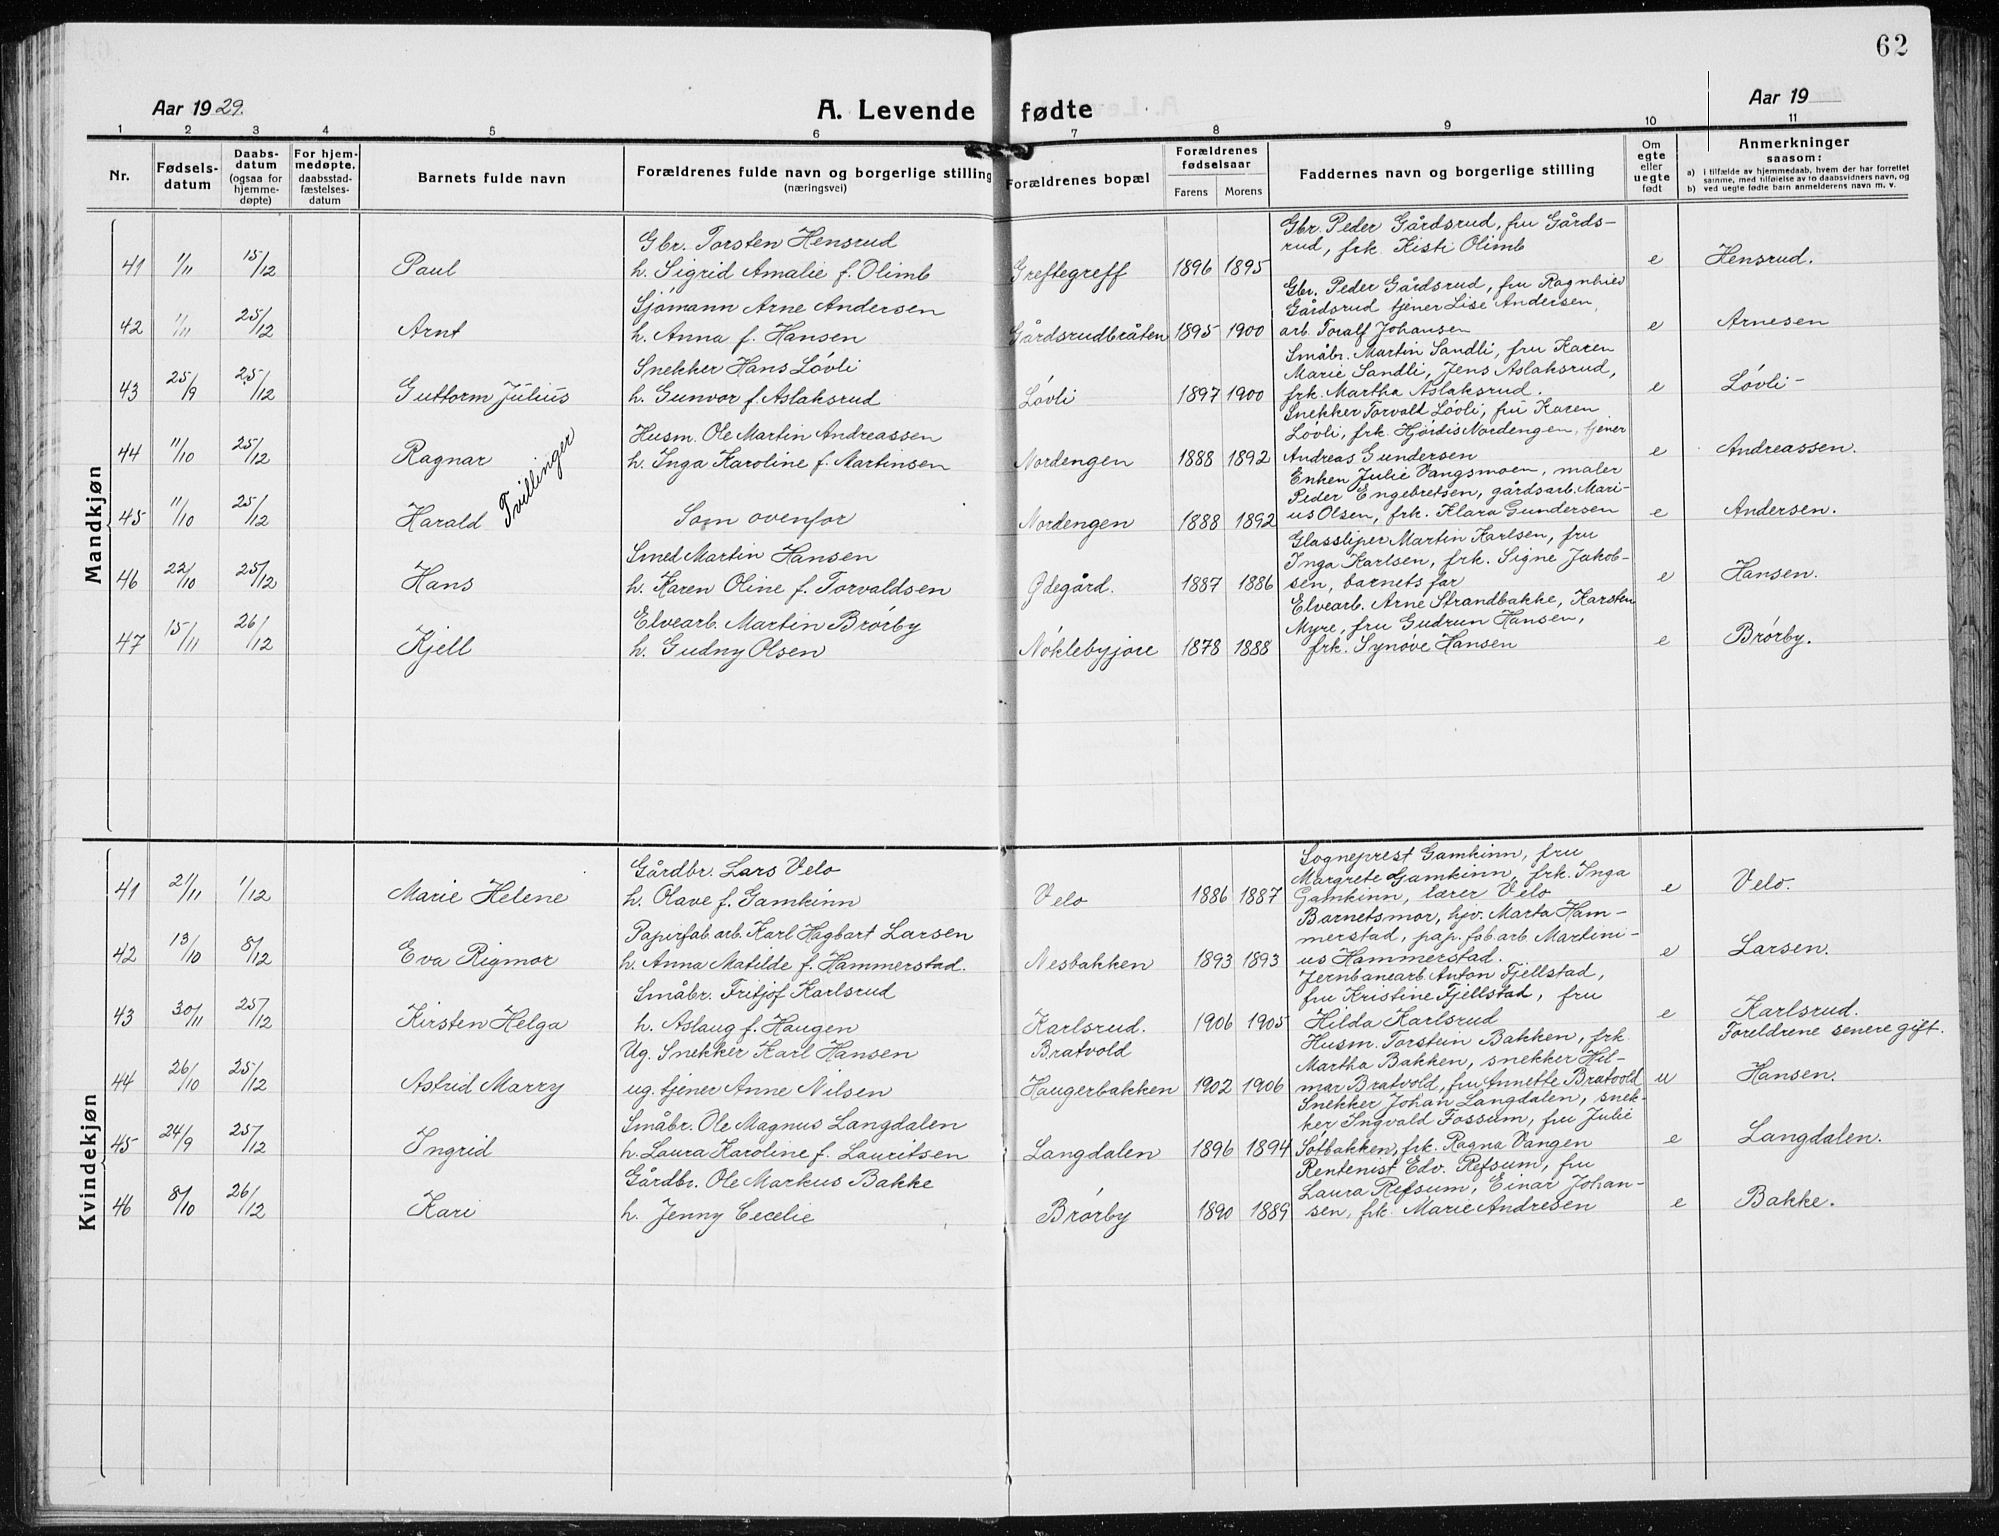 62
Aar 1929.
A. Levende fødte
Aar 19
1 2 3 4 5 6 7 8 9 10 11
Nr.
Fødsels-
datum
Daabs-
datum
(ogsaa for
hjemme-
døpte)
For hjem-
medøpte,
daabsstad-
fæstelses-
datum
Barnets fulde navn
Forældrenes fulde navn og borgerlige stilling
(næringsvei)
Forældrenes bopæl
Forældrenes
fødselsaar
Farens Morens
Faddernes navn og borgerlige stilling
Om
egte
eller
uegte
født
Anmerkninger
saasom:
a) i tilfælde av hjemmedaab, hvem der har forrettet
samme, med tilføielse av to daabsvidners navn, og
b) ved uegte fødte barn anmelderens navn m. v.
Mandkjøn
Gbr. Torsten Hensrud
Gbr. Peder Gårdsrud, fru Gårds-
rud, frk. Kisti Olimb
41 1/11 15/12 Paul h. Sigrid Amalie f. Olimb Greftegreff 1896 1895 e Hensrud.
Sjømann Arne Andersen
Gbr. Peder Gårdsrud, fru Ragnhild
Gårdsrud tjener Lise Andersen,
42 1/11 25/12 Arnt h. Anna f. Hansen Gårdsrudbråten 1895 1900 arb. Toralf Johansen e Arnesen
Snekker Hans Løvli
Småbr. Martin Sandli, fru Karen
Marie Sandli, Jens Aslaksrud,
43 25/9 25/12 Guttorm Julius h. Gunvor f. Aslaksrud Løvli 1897 1900 frk. Martha Aslaksrud. e Løvli-
Husm. Ole Martin Andreassen
Snekker Torvald Løvli, fru Karen
Løvli, frk. Hjørdis Nordengen, tjener
44 11/10 25/12 Ragnar h. Inga Karoline f. Martinsen Nordengen 1888 1892 Andreas Gundersen e Andreassen.
Tvillinger
Enken Julie Vangsmoen, maler
Peder Engebretsen, gårdsarb. Mari-
45 11/10 25/12 Harald Som ovenfor Nordengen 1888 1892 us Olsen, frk. Klara Gundersen e Andersen.
Smed Martin Hansen
Glassliper Martin Karlsen, fru
Inga Karlsen, frk. Signe Jakob-
46 22/10 25/12 Hans h. Karen Oline f. Torvaldsen Ødegård. 1887 1886 sen, barnets far e Hansen.
Elvearb. Martin Brørby
Elvearb. Arne Strandbakke, Karsten
Myre, fru Gudrun Hansen,
47 15/11 26/12 Kjell h. Gudny Olsen Nøklebyjore 1878 1888 frk. Synøve Hansen e Brørby.
Kvindekjøn
Gårdbr. Lars Velo
Sogneprest Gamkinn, fru
Margrete Gamkinn, frk. Inga
41 21/11 1/12 Marie Helene h. Olave f. Gamkinn Velo 1886 1887 Gamkinn, lærer Velo e Velo.
Papirfab.arb. Karl Hagbart Larsen
Barnetsmor, hjv. Marta Ham-
merstad, pap. fab.arb. Martini-
42 13/10 8/12 Eva Rigmor h. Anna Matilde f. Hammerstad. Nesbakken 1893 1893 us Hammerstad. e Larsen.
Småbr. Fritjof Karlsrud
Jernbanearb. Anton Fjellstad,
fru Kristine Fjellstad, fru
43 30/11 25/12 Kirsten Helga h. Aslaug f. Haugen Karlsrud. 1906 1905 Hilda Karlsrud e Karlsrud.
Foreldrene senere gift.
Ug. Snekker Karl Hansen Bratvold
Husm. Torstein Bakken, frk.
Martha Bakken, snekker Hil-
44 26/10 25/12 Astrid Marry ug. tjener Anne Nilsen Haugerbakken 1902 1906 mar Bratvold, fru Annette Bratvold u Hansen.
Småbr. Ole Magnus Langdalen
Snekker Johan Langdalen, snek-
ker Ingvald Fossum, fru Julie
45 24/9 25/12 Ingrid h. Laura Karoline f. Lauritsen Langdalen 1896 1894 Sotbakken, frk. Ragna Vangen e Langdalen.
Gårdbr. Ole Markus Bakke
Rentenist Edv. Refsum, fru
Laura Refsum, Einar Johan-
46 8/10 26/12 Kari h. Jenny Cecelie Brørby 1890 1889 sen, frk. Marie Andresen e Bakke.